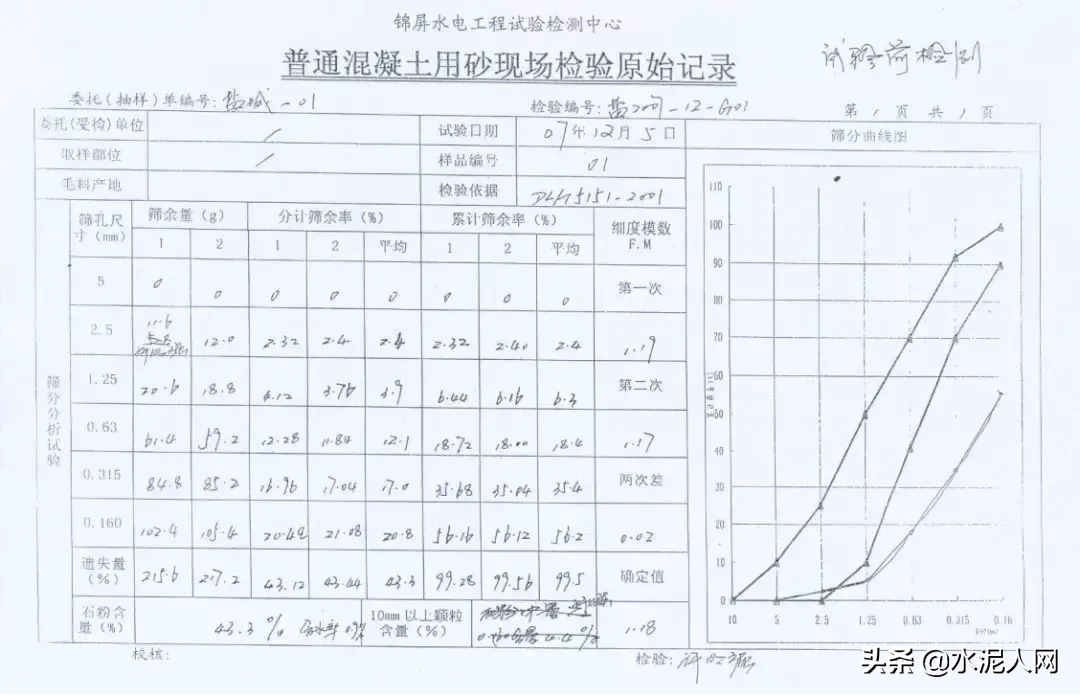 锦屏水电工程试验检测中心
普通混凝土用砂现场检验原始记录
试验前检测
委托(抽样)单编号: 盐城-01 检验编号: 盐2007-12-G01 第 1 页 共 1 页
委托(受检)单位 / 试验日期 07年12月5日 筛分曲线图
取样部位 / 样品编号 01
毛料产地 检验依据 DL/T5151-2001
筛孔尺寸(mm) 筛余量(g) 分计筛余率(%) 累计筛余率(%) 细度模数 F.M
1 2 1 2 平均 1 2 平均
筛分分析试验
5 0 0 0 0 0 0 0 0 第一次
2.5 11.6 12.0 2.32 2.4 2.4 2.32 2.40 2.4 1.19
1.25 20.6 18.8 4.12 3.76 3.9 6.44 6.16 6.3 第二次
0.63 61.4 59.2 12.28 11.84 12.1 18.72 18.00 18.4 1.17
0.315 84.8 85.2 16.96 17.04 17.0 35.68 35.04 35.4 两次差
0.160 102.4 105.4 20.48 21.08 20.8 56.16 56.12 56.2 0.02
遗失量(%) 215.6 217.2 43.12 43.44 43.3 99.28 99.56 99.5 确定值
石粉含量(%) 43.3% 含水率 10mm以上颗粒含量(%) 1.18
校核: 检验:
110
100
90
80
70
60
50
40
30
20
10
0
10 5 2.5 1.25 0.63 0.315 0.16
头条 @水泥人网